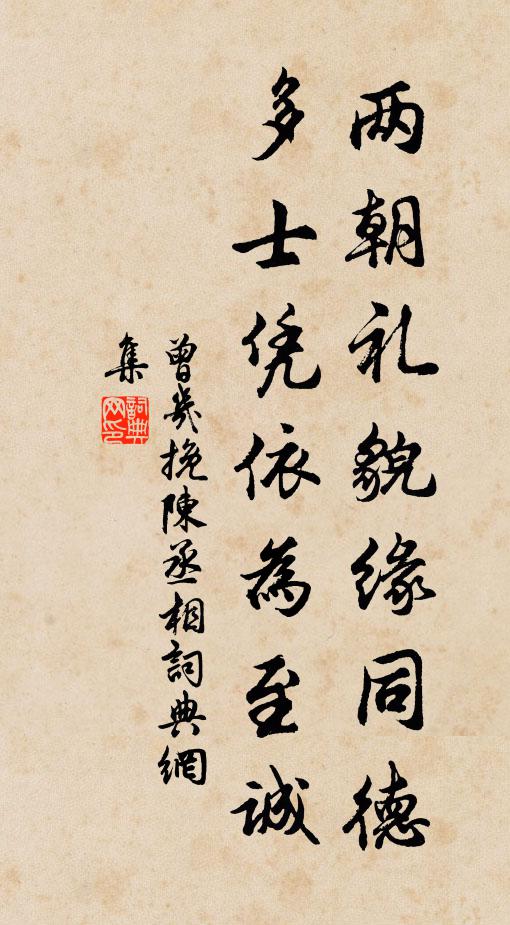 两朝礼貌缘同德
多士凭依为至诚
曾几挽陳丞相詞典網
集
詞典
网印